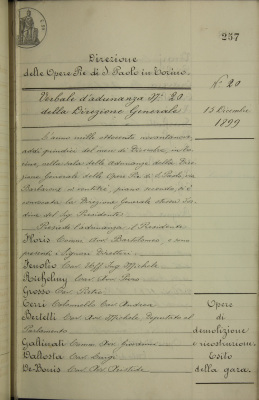 257
Direzione
delle Opere Pie di S. Paolo in Torino.
N.° 20
Verbale d'adunanza N.° 20
della Direzione Generale
15 Dicembre
1899
L'anno mille ottocento novantanove,
addì quindici del mese di Dicembre, in Torino,
nella sala delle adunanze della Direzione
Generale delle Opere Pie di S. Paolo, via
primo piano, si è
convocata la Direzione Generale
del Sig. Presidente
Presiede l'adunanza il Presidente
Floris Comm. Avv. Bartolomeo, e sono
presenti i Signori Direttori:
Cav. Uff. Ing. Michele
Cav. Avv.
Grosso Cav. Pietro
Cerri Colonnello Cav. Andrea
Bertetti Cav. Avv. Michele Deputato al
Parlamento
Galtinati Comm. Avv. Giovanni
Balbosta Cav. Luigi
De-Bonis Cav. Avv. Aristide
Opere
di
demolizione
e ricostruzione.
Esito
della gara.